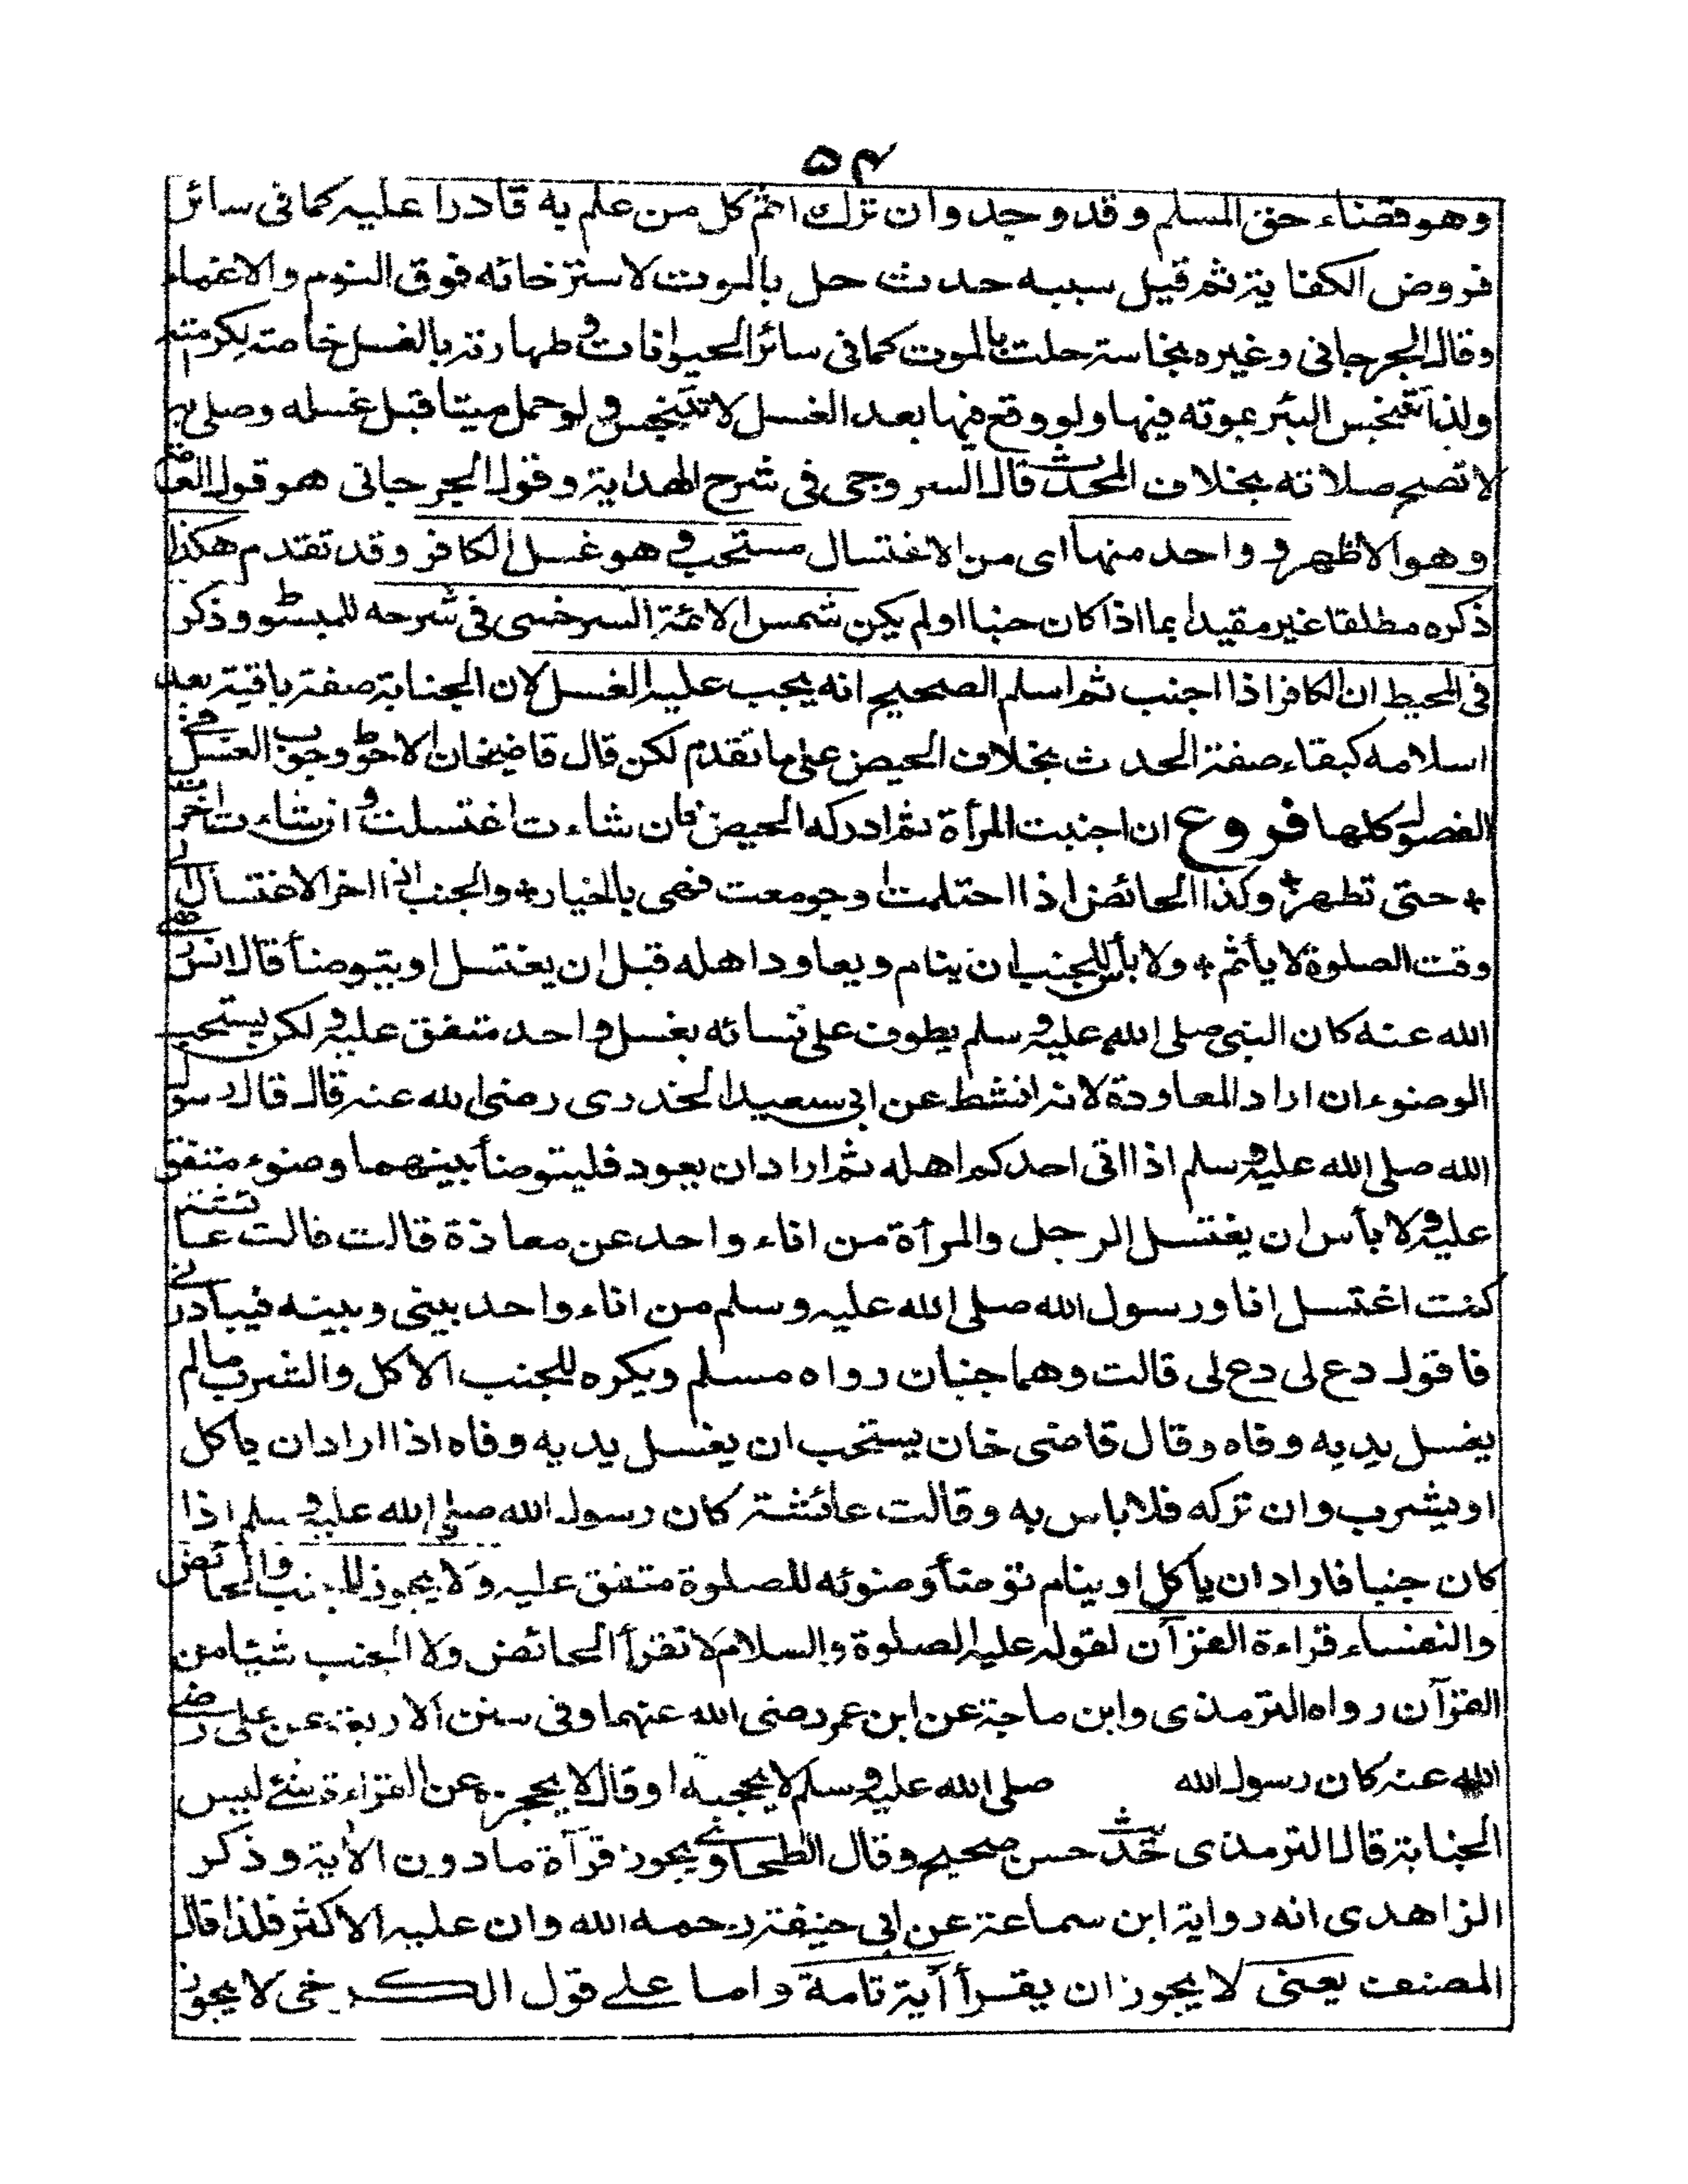 ۵۴
وهو قضاء حق المسلم وقد وجد وان ترك اثم كل من علم به قادرا عليه كما فى سائر
فروض الكفاية ثم قيل سببه حدث حل بالموت لاسترخائه فوق النوم والاغماء
وقال الجرجانى وغيره نجاسة حلت بالموت كما فى سائر الحيوانات وطهارته بالغسل خاصة لكرمته
ولذا تتنجس البئر بموته فيها ولو وقع فيها بعد الغسل لا تتنجس ولو حمل ميتا قبل غسله وصلى به
لا تصح صلاته بخلاف المحدث قال السروجى فى شرح الهداية وقول الجرجانى هو قول العامة
وهو الاظهر و واحد منها اى من الاغتسال مستحب و هو غسل الكافر وقد تقدم هكذا
ذكره مطلقا غير مقيد بما اذا كان جنبا او لم يكن شمس الائمة السرخسى فى شرحه للمبسوط وذكر
فى المحيط ان الكافر اذا اجنب ثم اسلم الصحيح انه يجب عليه الغسل لان الجنابة صفة باقية بعد
اسلامه كبقاء صفة الحدث بخلاف الحيض على ما تقدم لكن قال قاضيخان الاحوط وجوب الغسل فى
الفصول كلها فروع ان اجنبت المرأة ثم ادركها الحيض فان شاءت اغتسلت و ان شاءت اخرت
* حتى تطهر * وكذا الحائض اذا احتلمت او جومعت فهى بالخيار * والجنب اذا اخر الاغتسال الى
وقت الصلوة لا يأثم * ولا بأس للجنب ان ينام ويعاود اهله قبل ان يغتسل او يتوضأ قال انس رضى
الله عنه كان النبى صلى الله عليه و سلم يطوف على نسائه بغسل واحد متفق عليه و لكن يستحب
الوضوء ان اراد المعاودة لانه انشط عن ابى سعيد الخدرى رضى الله عنه قال قال رسول
الله صلى الله عليه و سلم اذا اتى احدكم اهله ثم اراد ان يعود فليتوضأ بينهما وضوء متفق
عليه و لا بأس ان يغتسل الرجل والمرأة من اناء واحد عن معاذة قالت قالت عائشة
كنت اغتسل انا ورسول الله صلى الله عليه وسلم من اناء واحد بينى وبينه فيبادرنى
فاقول دع لى دع لى قالت وهما جنبان رواه مسلم ويكره للجنب الاكل والشرب ما لم
يغسل يديه وفاه وقال قاضى خان يستحب ان يغسل يديه وفاه اذا اراد ان ياكل
او يشرب وان تركه فلا باس به وقالت عائشة كان رسول الله صلى الله عليه و سلم اذا
كان جنبا فاراد ان ياكل او ينام توضأ وضوئه للصلوة متفق عليه ولا يجوز للجنب والحائض
والنفساء قراءة القرآن لقوله عليه الصلوة والسلام لا تقرأ الحائض ولا الجنب شيئا من
القرآن رواه الترمذى وابن ماجة عن ابن عمر رضى الله عنهما وفى سنن الاربعة عن على رضى
الله عنه كان رسول الله صلى الله عليه و سلم لا يحجبه او قال لا يحجزه عن القراءة شئ ليس
الجنابة قال الترمذى حديث حسن صحيح وقال الطحاوى يجوز قرآة ما دون الآية وذكر
الزاهدى انه رواية ابن سماعة عن ابى حنيفة رحمه الله وان عليه الاكثر فلذا قال
المصنف يعنى لا يجوز ان يقرأ آية تامة واما على قول الكرخى لا يجوز